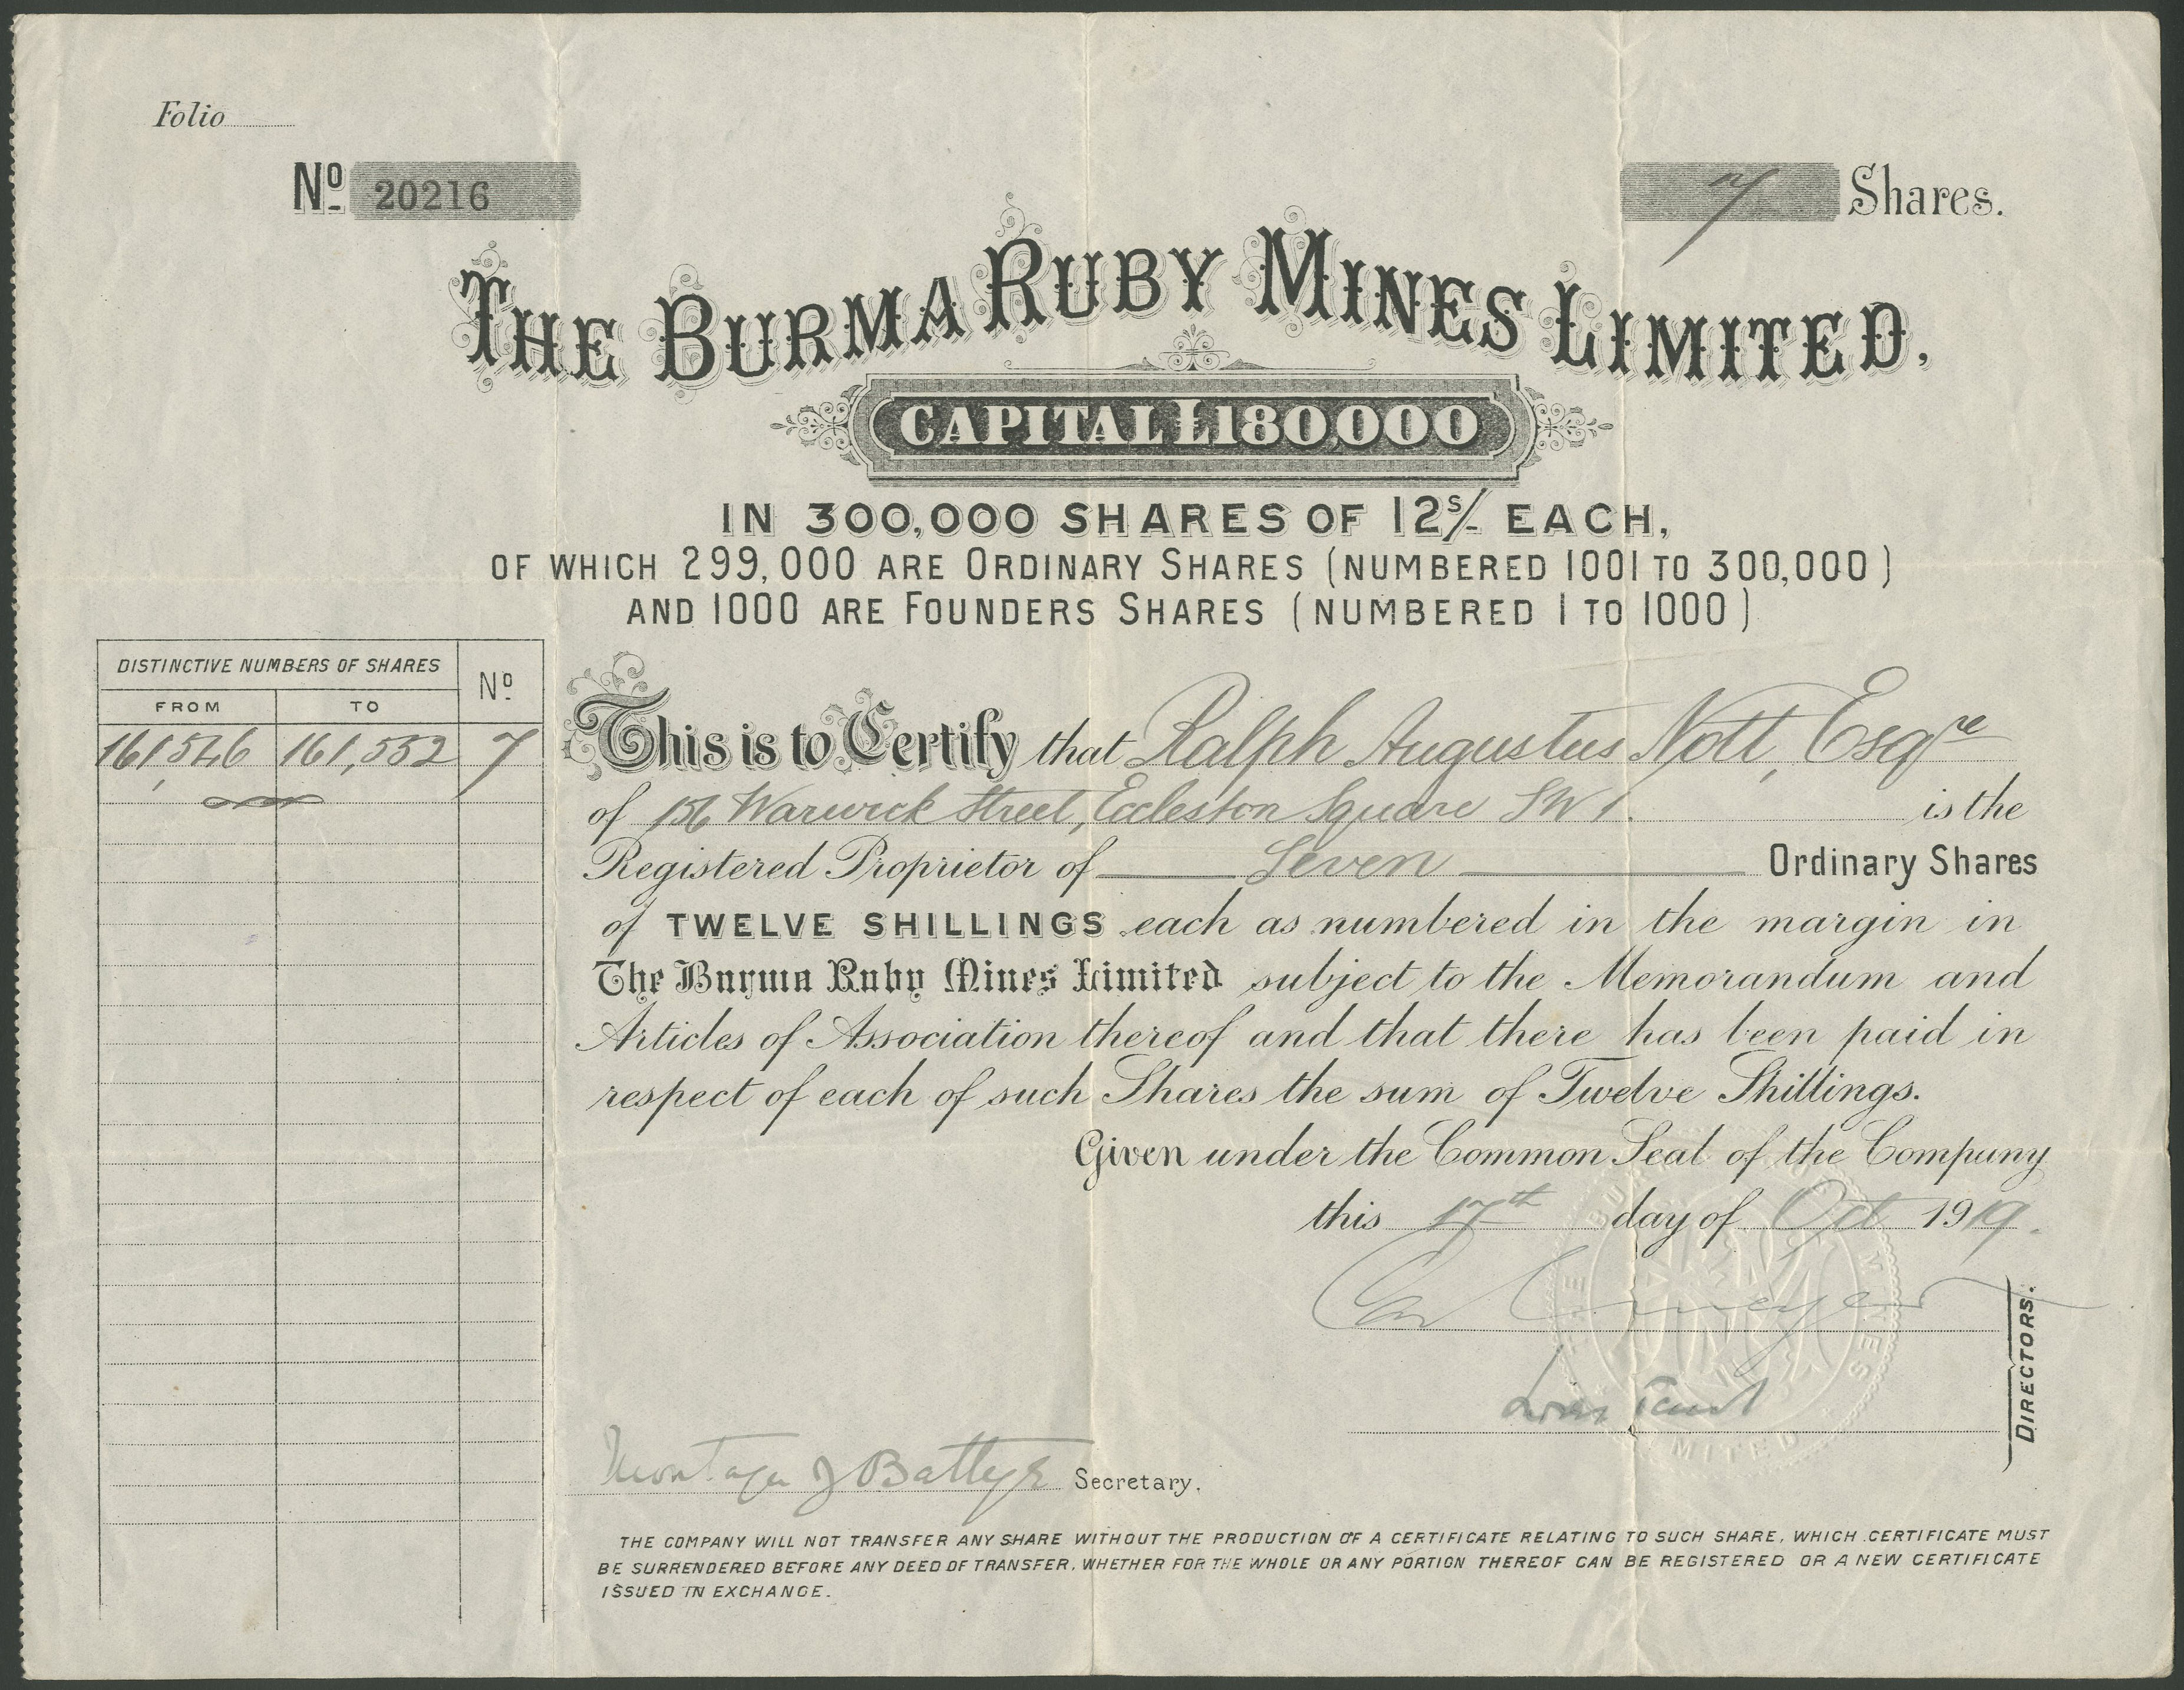 Folio
No 20216
7 Shares.
THE BURMA RUBY MINES LIMITED.
CAPITAL £180,000
IN 300,000 SHARES OF 12s/- EACH,
OF WHICH 299,000 ARE ORDINARY SHARES (NUMBERED 1001 TO 300,000)
AND 1000 ARE FOUNDERS SHARES (NUMBERED 1 TO 1000)
DISTINCTIVE NUMBERS OF SHARES No
FROM TO
161,546 161,552 7
This is to Certify that Ralph Augustus Nott, Esqre
of 156 Warwick Street, Eccleston Square SW1. is the
Registered Proprietor of Seven Ordinary Shares
of TWELVE SHILLINGS each as numbered in the margin in
The Burma Ruby Mines Limited subject to the Memorandum and
Articles of Association thereof and that there has been paid in
respect of each of such Shares the sum of Twelve Shillings.
Given under the Common Seal of the Company
this 17th day of Oct 1919.
DIRECTORS.
Montagu J Battye Secretary.
THE COMPANY WILL NOT TRANSFER ANY SHARE WITHOUT THE PRODUCTION OF A CERTIFICATE RELATING TO SUCH SHARE, WHICH CERTIFICATE MUST
BE SURRENDERED BEFORE ANY DEED OF TRANSFER, WHETHER FOR THE WHOLE OR ANY PORTION THEREOF CAN BE REGISTERED OR A NEW CERTIFICATE
ISSUED IN EXCHANGE.